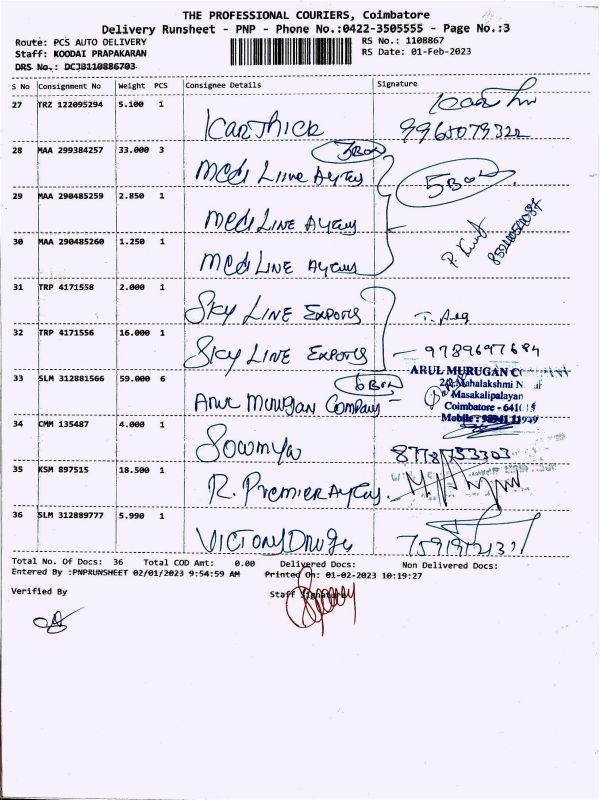 THE PROFESSIONAL COURIERS, Coimbatore
Delivery Runsheet - PNP - Phone No.:0422-3505555 - Page No.:3
Route: PCS AUTO DELIVERY
RS No.: 1108867
Staff: KOODAI PRAPAKARAN
RS Date: 01-Feb-2023
DRS No.: DCJB110886703
S No Consignment No Weight PCS Consignee Details Signature
27 TRZ 122095294 5.100 1 Karthick
28 MAA 299384257 33.000 3 Medi Line 3Box
5Box
29 MAA 290485259 2.850 1 Medi Line
30 MAA 290485260 1.250 1 Medi Line
31 TRP 4171558 2.000 1 Sky Line Exports
32 TRP 4171556 16.000 1 Sky Line Exports 9789697684
33 SLM 312881566 59.000 6 Arul Murugan Company 6Box
ARUL MURUGAN
Mahalakshmi
Masakalipalayam
Coimbatore - 641015
Mobile : 98941 11949
34 CMM 135487 4.000 1 Sowmya
35 KSM 897515 18.500 1 R. Premier
36 SLM 312889777 5.990 1 Victory Drugs
Total No. Of Docs: 36 Total COD Amt: 0.00 Delivered Docs: Non Delivered Docs:
Entered By :PNPRUNSHEET 02/01/2023 9:54:59 AM Printed On: 01-02-2023 10:19:27
Verified By Staff Signature